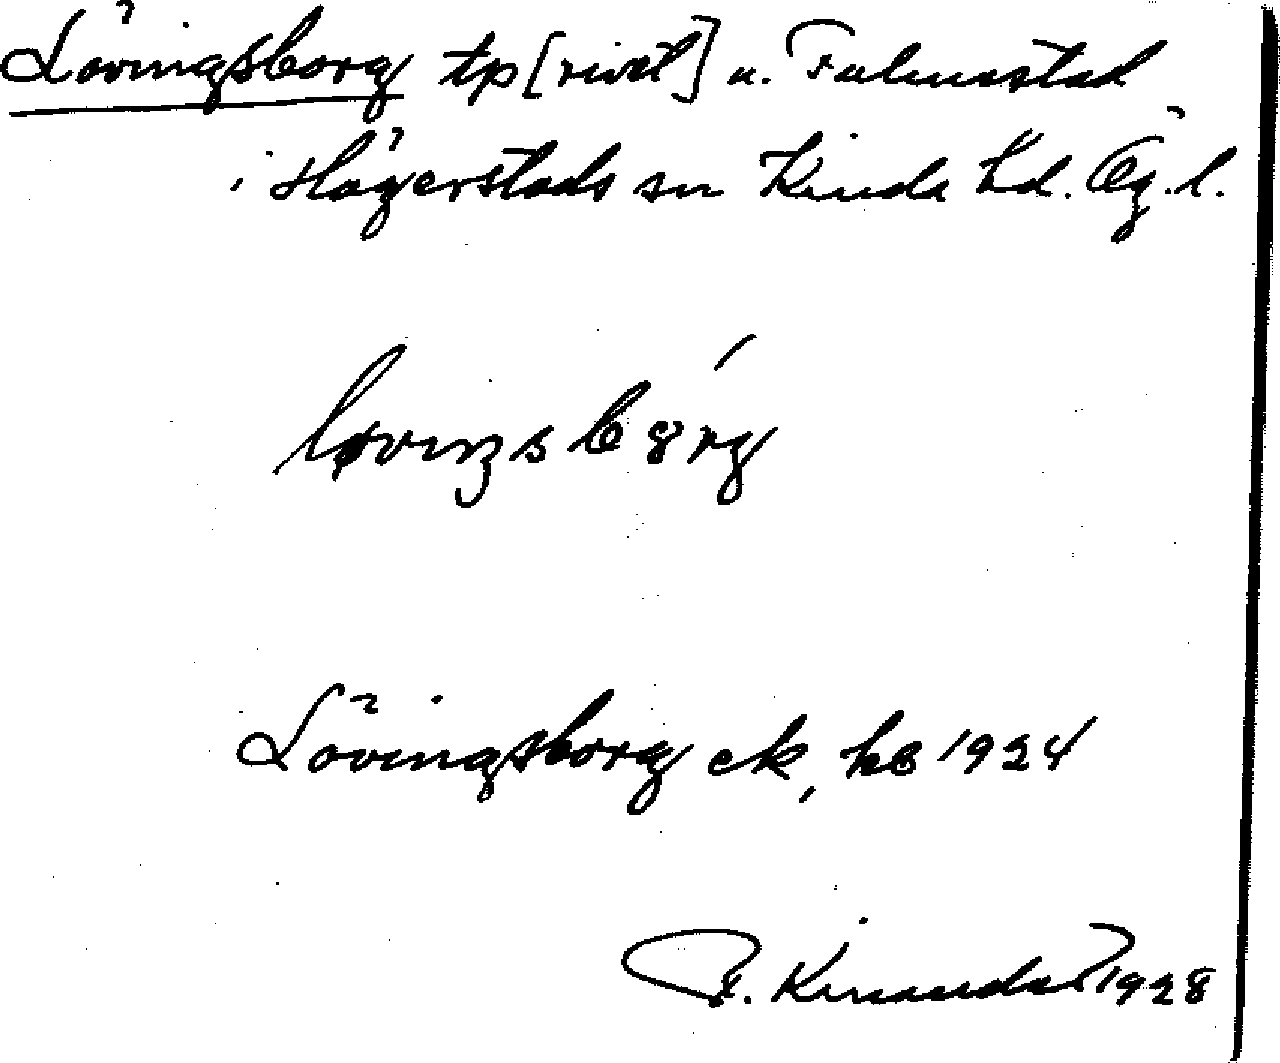 Lövingsborg tp [rivet] u. Falerstad
i Hägerstads sn Kinda hd. Ög. l.
løviŋsbȣrg
Lövingsborg ek, hb 1924
1928